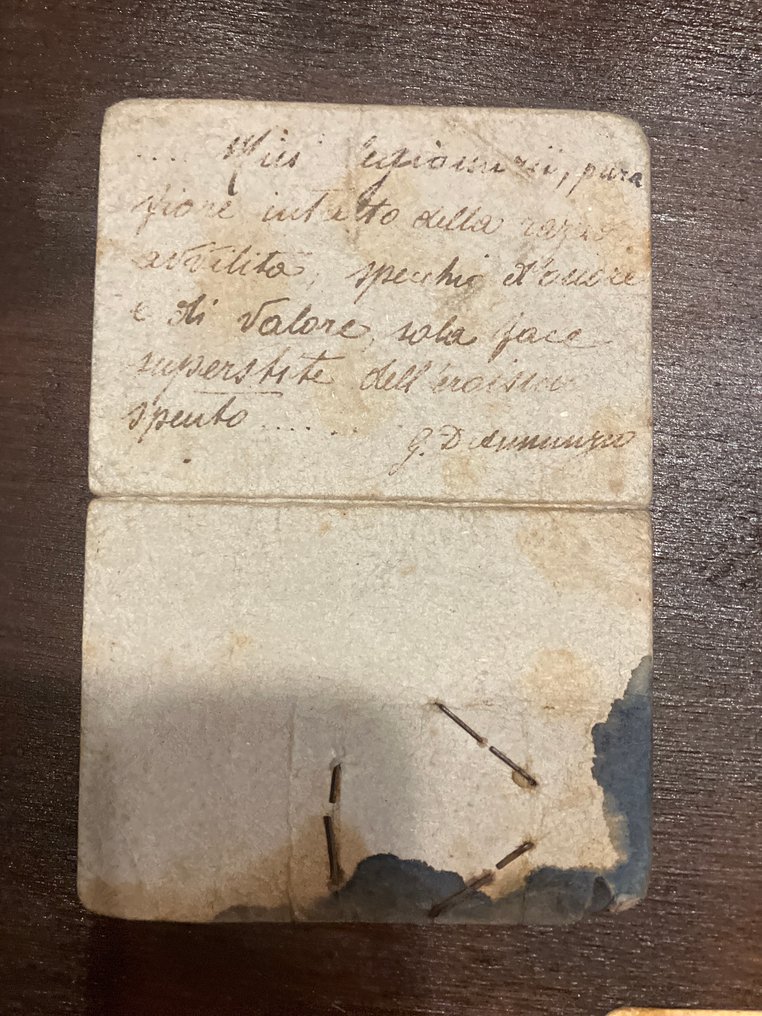 .... Miei legionarii, pura
fiore intatto della razza
avvilita, specchio d'onore
e di valore, sola face
superstite dell'eroismo
spento ......
G. D'Annunzio